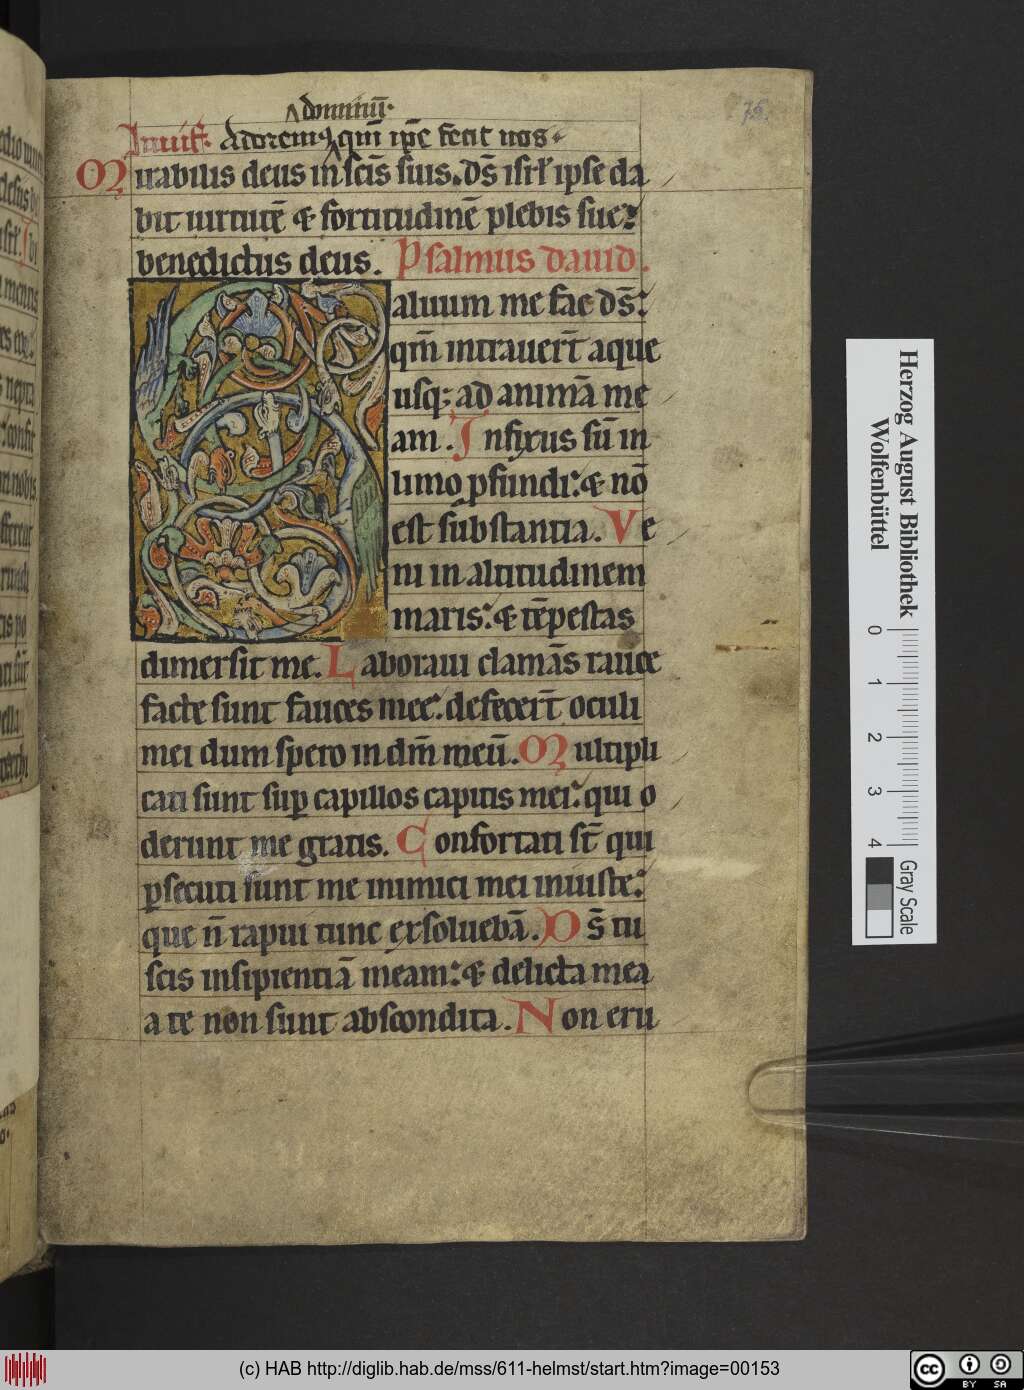 dominū.
76.
Inuit. Adoremꝰ qm̄ ip̄e fecit nos.
Mirabilis deus in sc̄is suis. ds̄ isrl̄ ipse da
bit uirtutē & fortitudinē plebis sue:
benedictus deus. Psalmus dauid.
Saluum me fac ds̄:
qm̄ intrauer̄t aque
usq; ad animā me
am. Infixus sū in
limo ꝓfundi: & nō
est substantia. Ve
ni in altitudinem
maris: & tēpestas
dimersit me. Laboraui clamās rauce
facte sunt fauces mee: defecer̄t oculi
mei dum spero in dm̄ meū. Multipli
cati sunt sup̱ capillos capitis mei: qui o
derunt me gratis. Confortati st̄ qui
ꝑsecuti sunt me inimici mei iniuste:
que n̄ rapui tunc exsoluebā. Ds̄ tu
scis insipientiā meam: & delicta mea
a te non sunt abscondita. Non eru
Herzog August Bibliothek
Wolfenbüttel
0 1 2 3 4
Gray Scale
(c) HAB http://diglib.hab.de/mss/611-helmst/start.htm?image=00153
cc BY SA